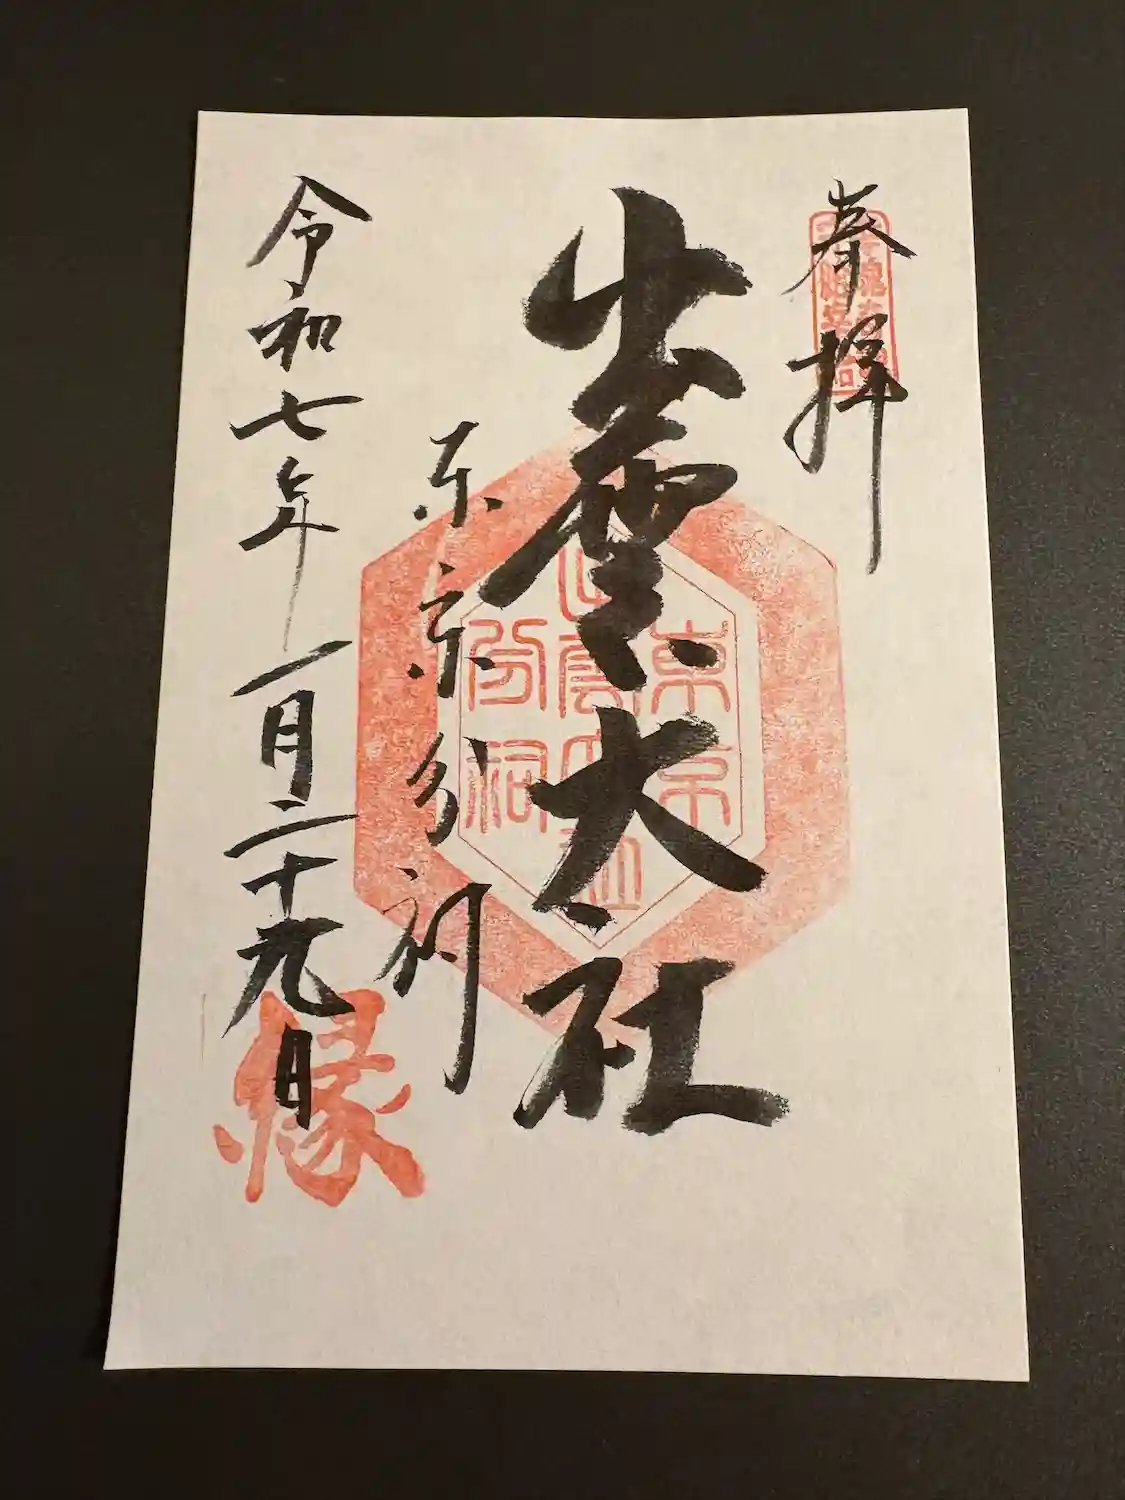 奉拝
出雲大社
東京分祠
令和七年一月二十九日
東京
出雲大社
分祠
縁